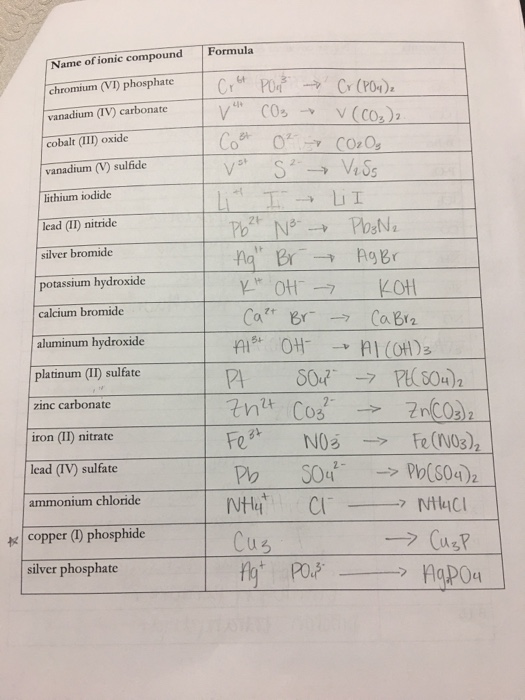 Name of ionic compound Formula
chromium (VI) phosphate Cr⁶⁺ PO₄³⁻ → Cr(PO₄)₂
vanadium (IV) carbonate V⁴⁺ CO₃ → V(CO₃)₂
cobalt (III) oxide Co³⁺ O²⁻ → CO₂O₃
vanadium (V) sulfide V⁵⁺ S²⁻ → V₂S₅
lithium iodide Li⁺¹ I⁻ → LiI
lead (II) nitride Pb²⁺ N³⁻ → Pb₃N₂
silver bromide Ag¹⁺ Br⁻ → AgBr
potassium hydroxide K¹⁺ OH⁻ → KOH
calcium bromide Ca²⁺ Br⁻ → CaBr₂
aluminum hydroxide Al³⁺ OH⁻ → Al(OH)₃
platinum (II) sulfate Pt SO₄²⁻ → Pt(SO₄)₂
zinc carbonate Zn²⁺ CO₃²⁻ → Zn(CO₃)₂
iron (II) nitrate Fe³⁺ NO₃⁻ → Fe(NO₃)₂
lead (IV) sulfate Pb SO₄²⁻ → Pb(SO₄)₂
ammonium chloride NH₄⁺ Cl⁻ → NH₄Cl
☆ copper (I) phosphide Cu₃ → Cu₃P
silver phosphate Ag⁺ PO₄³⁻ → AgPO₄